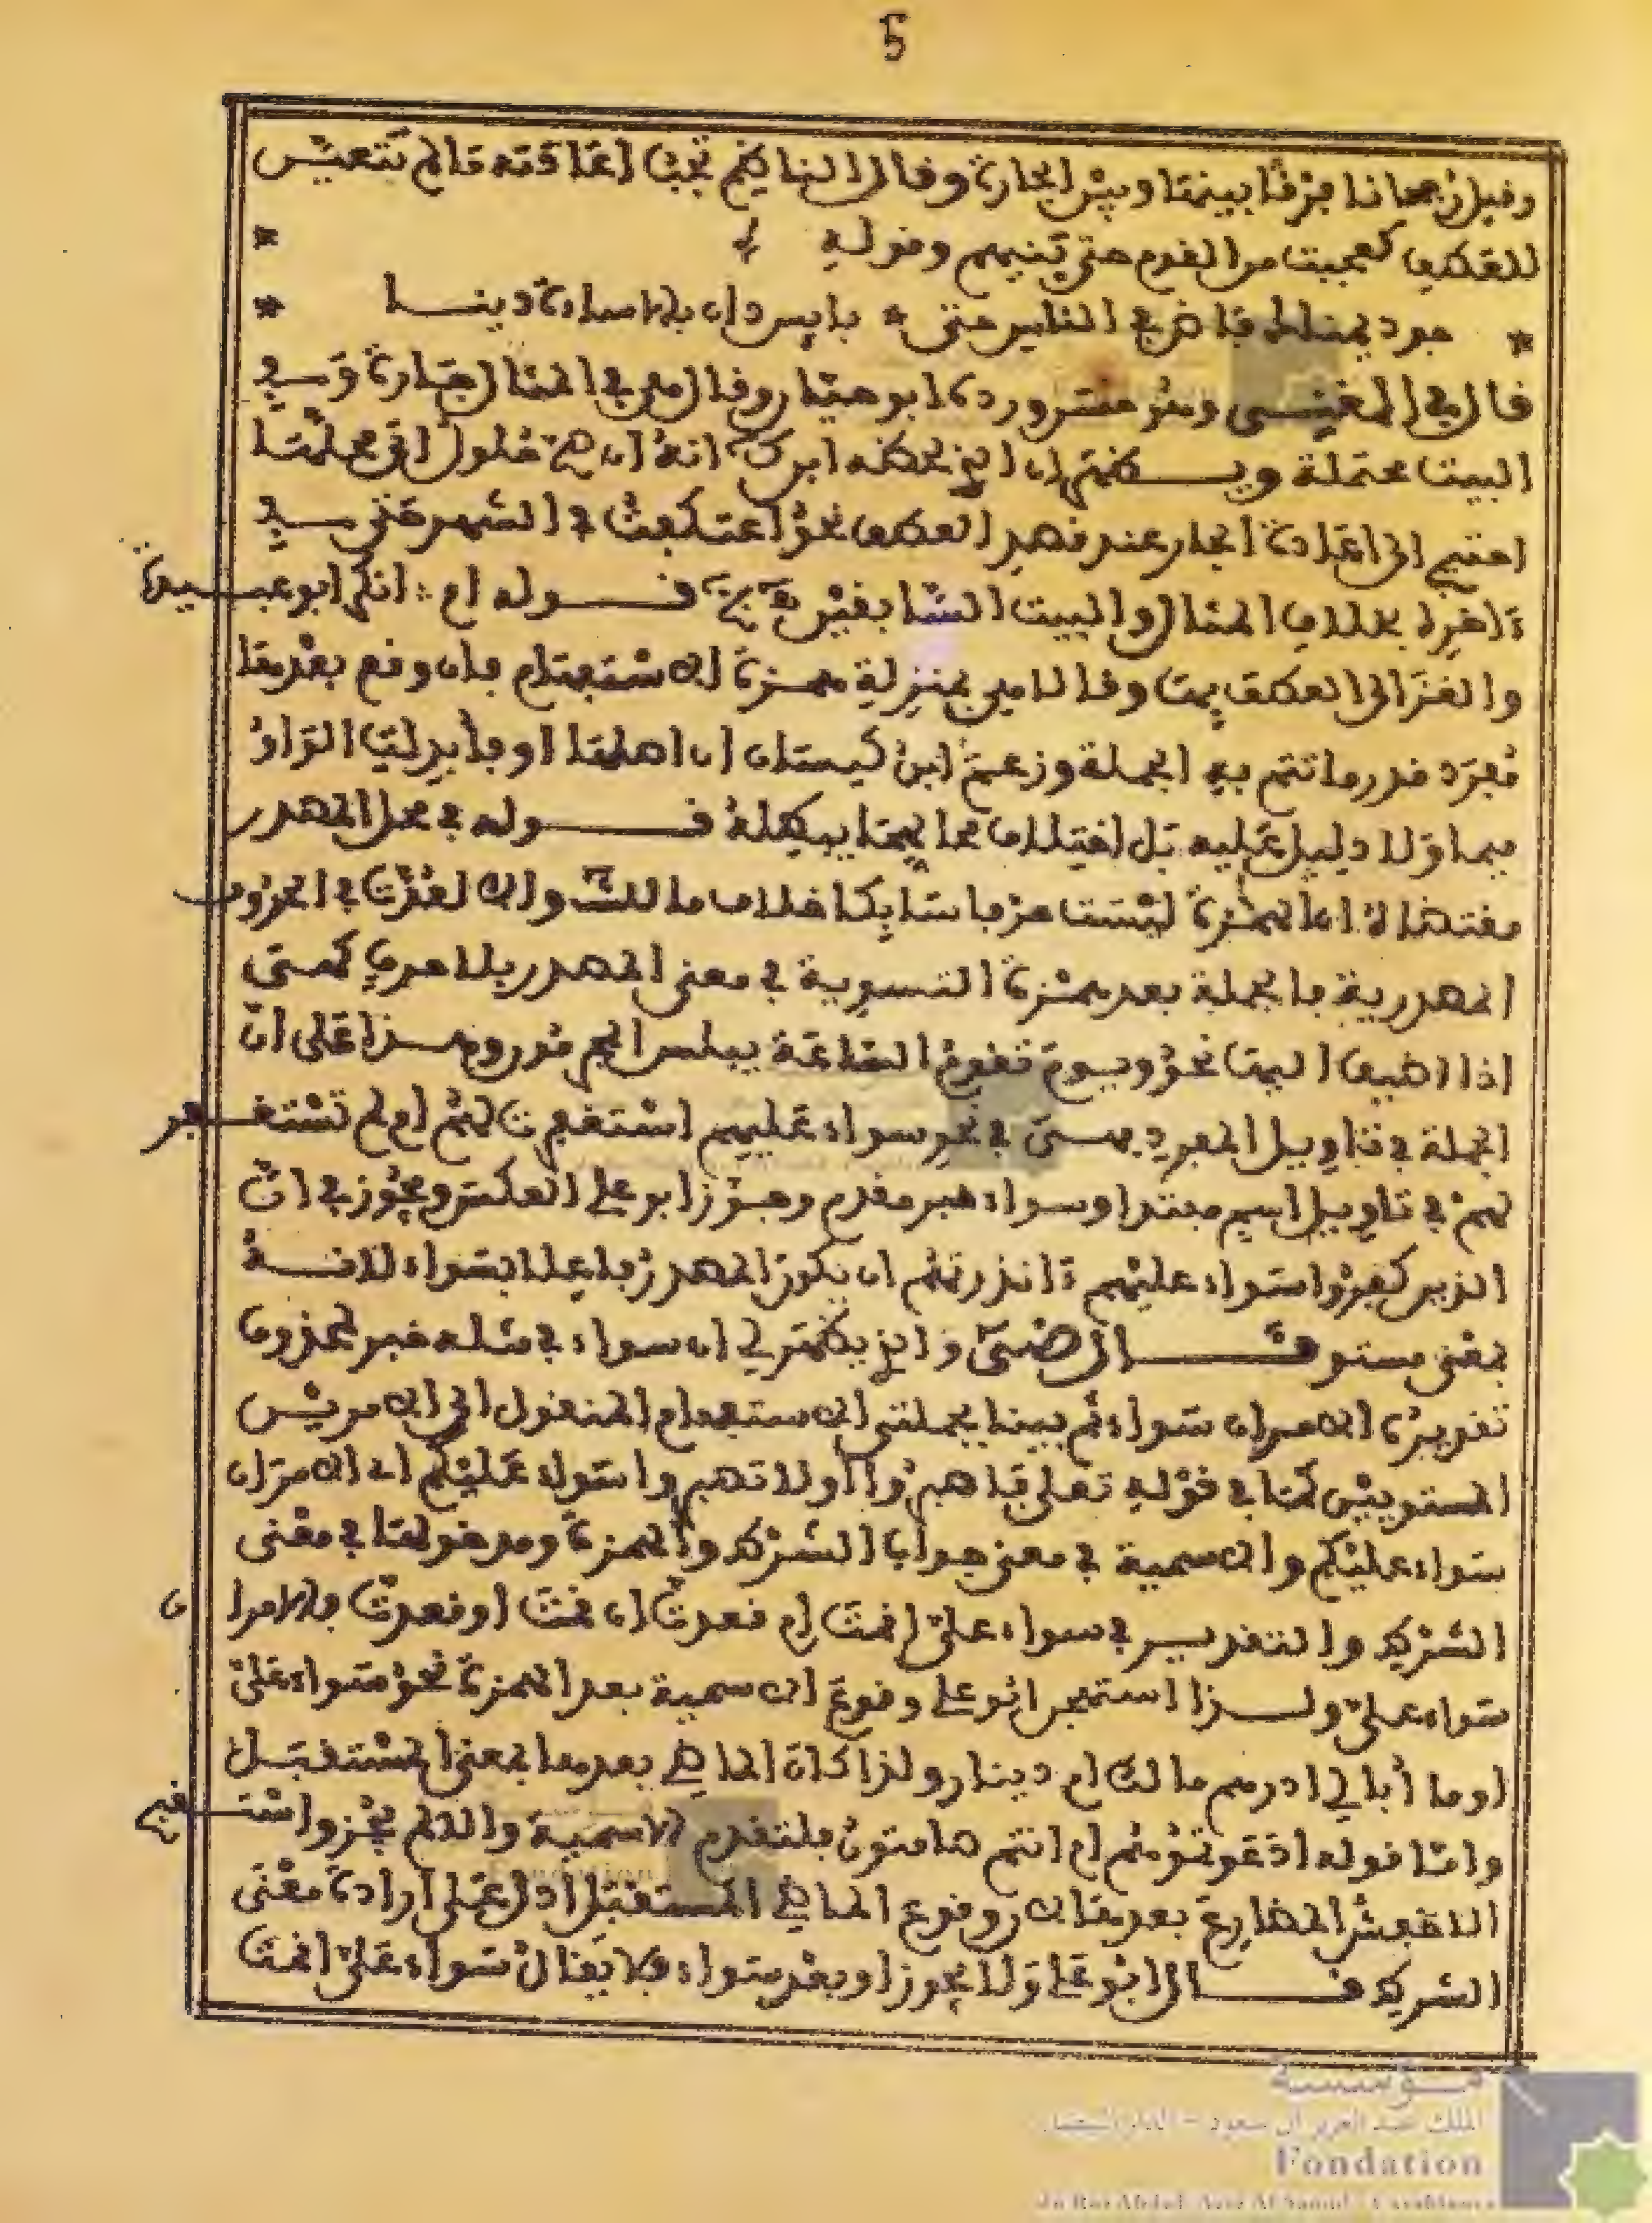 5
وقيل إن عجانا فرقا بينها وبين الجارة وقال الناظم تجب إعادته ما لم تتعين
للعطف كعجبت من القوم حتى بنيهم وقوله
* جود يمناك فاض في الخلق حتى * بائس دان بالإساءة دينا *
قال في المغني وهو حسن ورده أبو حيان وقال هي في المثال جارة وفي
البيت محتملة ويظهر لي أن الذي لحظه ابن ك أنه أن صح حلول إلى محلها
احتيج إلى إعادة الجار عند قصد العطف نحو اعتكفت في الشهر حتى في
آخره بخلاف المثال والبيت السابقين قوله أم : أنكر أبو عبيدة
والغزالي العطف بها وقالا هي بمنزلة همزة الاستفهام فإن وقع بعدها
مفرد قدر ما تتم به الجملة وزعم ابن كيسان أن أصلها أو فأبدلت الواو
ميما ولا دليل عليه بل اختلاف معانيهما يبطله قوله في محل المصدر
مقتضاه أن الهمزة ليست حرفا سابكا خلاف ما للش ولا لعدت في الحروف
المصدرية فالجملة بعد همزة التسوية في معنى المصدر بلا حرف كهي
إذا أضيف إليها نحو ويوم تقوم الساعة يبلس المجرمون وهذا على أن
الجملة في تأويل المفرد وهي في نحو سواء عليهم استغفرت لهم أم لم تستغفر
لهم في تأويل اسم مبتدإ وسواء خبر مقدم وجوز أبو علي العكس ويجوز في إن
الذين كفروا سواء عليهم ءانذرتهم أن يكون المصدر فاعلا بسواء لانه
بمعنى مستو قال الرضى والذي يظهر لي أن سواء في مثله خبر محذوف
تقديره الأمران سواء ثم بينا بجملتي الاستفهام المنقول إلى الأمرين
المستويين كما في قوله تعلى فاصبروا أو لا تصبروا سواء عليكم أي الأمران
سواء عليكم والاسمية في معنى جواب الشرط والهمزة ومدخولها في معنى
الشرط والتقدير في سواء علي أقمت أم قعدت إن قمت أو قعدت فالأمران
سواء علي ولذا استهجن أبو علي وقوع الاسمية بعد الهمزة نحو سواء علي
أو ما أبالي أدرهم مالك أم دينار ولذا كان الماضي بعدها بمعنى المستقبل
وأما قوله أدعوتموهم أم أنتم صامتون فلتقدم الاسمية وإلا لم يجز واستقبح
الأخفش المضارع بعدها لأن وقوع الماضي المستقبل أدل على إرادة معنى
الشرط قال أبو علي ولا يجوز أو بعد سواء فلا يقال سواء علي أقمت
مؤسسة
الملك عبد العزيز آل سعود - الدار البيضاء
Fondation
du Roi Abdul-Aziz Al Saoud - Casablanca